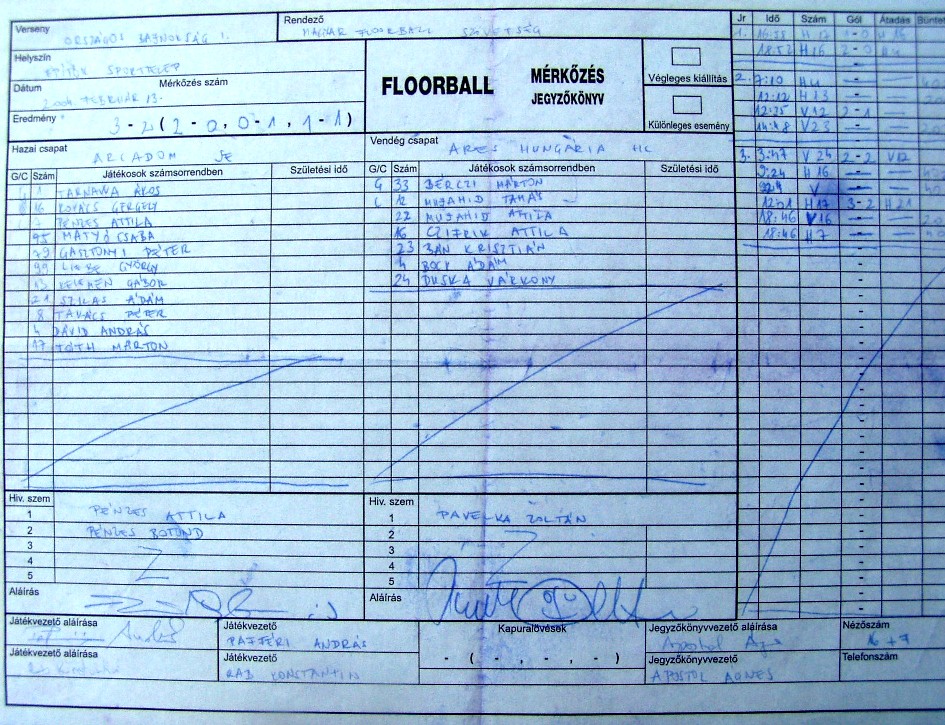 Verseny
ORSZÁGOS BAJNOKSÁG I.
Rendező
MAGYAR FLOORBALL SZÖVETSÉG
Helyszín
SPORTTELEP
Dátum
FEBRUÁR 13.
Mérkőzés szám
Eredmény
3-2 (2-0, 0-1, 1-1)
FLOORBALL
MÉRKŐZÉS
JEGYZŐKÖNYV
Végleges kiállítás
Különleges esemény
Hazai csapat
ARCADOM SE
Vendég csapat
ARES HUNGÁRIA HC
G/C Szám Játékosok számsorrendben Születési idő
1 TARNAWA ÁKOS
16 KOVÁCS GERGELY
PÉNZES ATTILA
95 MATYÓ CSABA
79 GASZTONYI PÉTER
99 GYÖRGY
13 KELEMEN GÁBOR
21 SZILAS ÁDÁM
8 TAKÁCS PÉTER
4 DÁVID ANDRÁS
17 TÓTH MÁRTON
G/C Szám Játékosok számsorrendben Születési idő
G 33 BÉRCZI MÁRTON
C 12 MUJAHID TAMÁS
22 MUJAHID ATTILA
16 CZIFRIK ATTILA
23 BÁN KRISZTIÁN
4 BOCK ÁDÁM
24 DUSKA VÁRKONY
Jr Idő Szám Gól Átadás Büntet
1. 16:55 H 17 1-0 H 16
18:52 H16 2-0 H4
2. 7:10 H4 -
12:12 H13 -
12:25 V12 2-1 -
14:48 V23 -
3. 3:47 V 24 2-2 V12
9:24 H 16 -
V -
H17 3-2 H21
18:46 V16 -
18:46 H7 -
Hiv. szem
1 PÉNZES ATTILA
2 PÉNZES BOTOND
3
4
5
Hiv. szem
1 PAVELKA ZOLTÁN
2
3
4
5
Aláírás
Aláírás
Játékvezető aláírása
Játékvezető
PAFFÉRI ANDRÁS
Kapuralövések
- ( - , - , - )
Jegyzőkönyvvezető aláírása
Nézőszám
16+7
Játékvezető aláírása
Játékvezető
RÁD KONSTANTIN
Jegyzőkönyvvezető
APOSTOL ÁGNES
Telefonszám